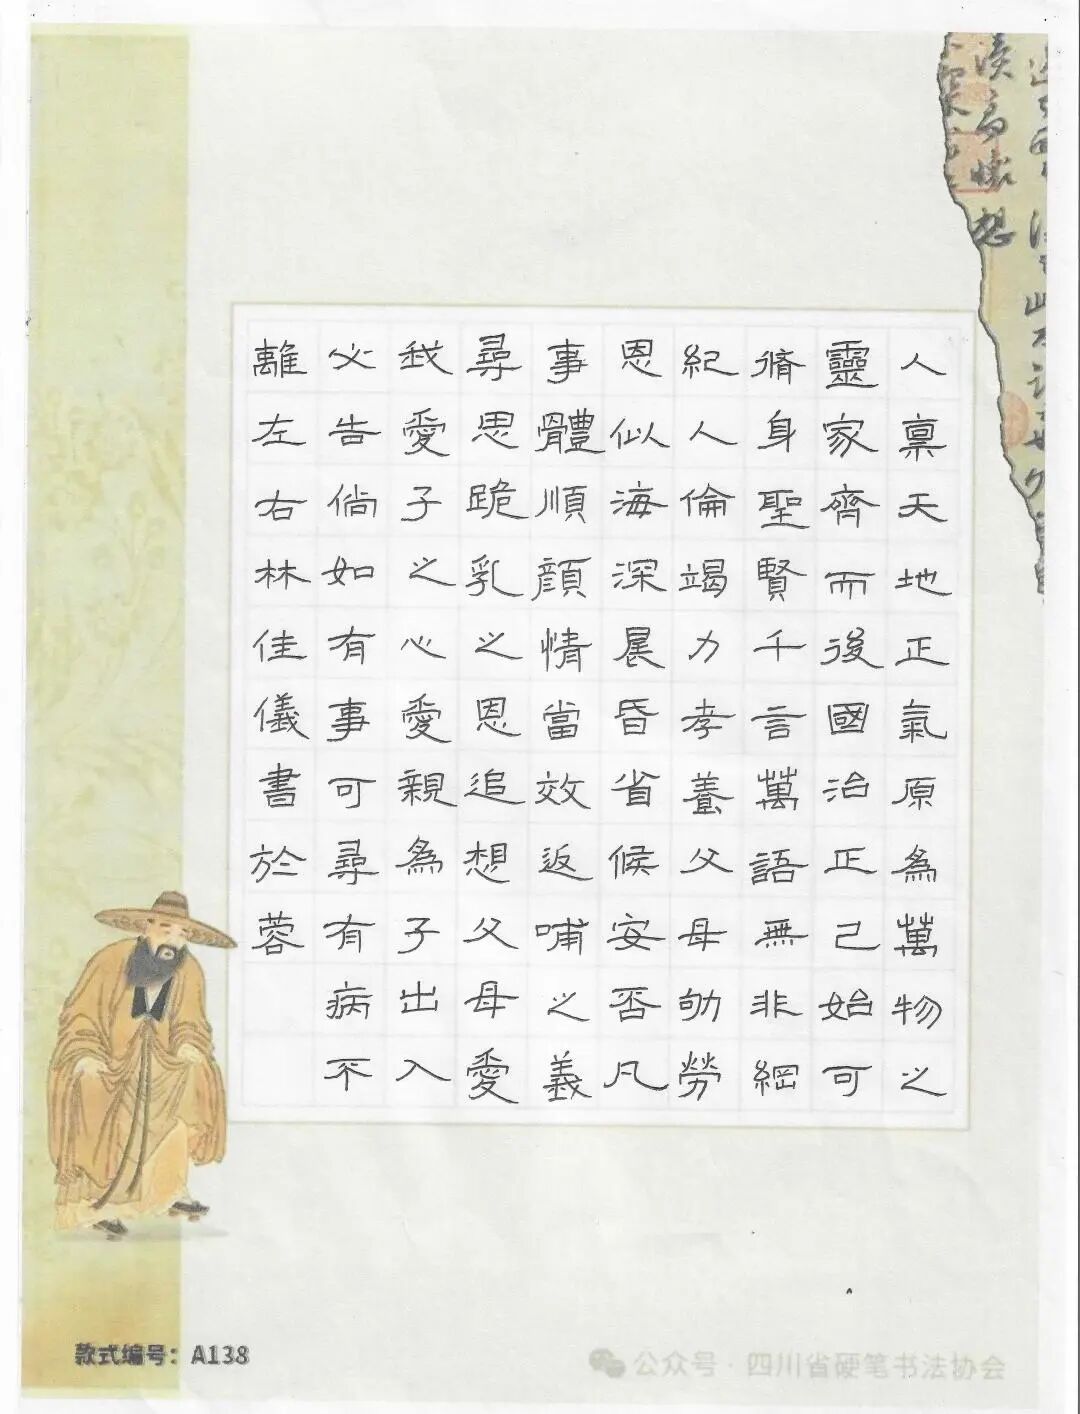 人稟天地正氣原為萬物之
靈家齊而後國治正己始可
脩身聖賢千言萬語無非綱
紀人倫竭力孝養父母劬勞
恩似海深晨昏省候安否凡
事體順顏情當效返哺之義
尋思跪乳之恩追想父母愛
我愛子之心愛親為子出入
必告倘如有事可尋有病不
離左右林佳儀書於蓉
款式编号：A138
公众号·四川省硬笔书法协会